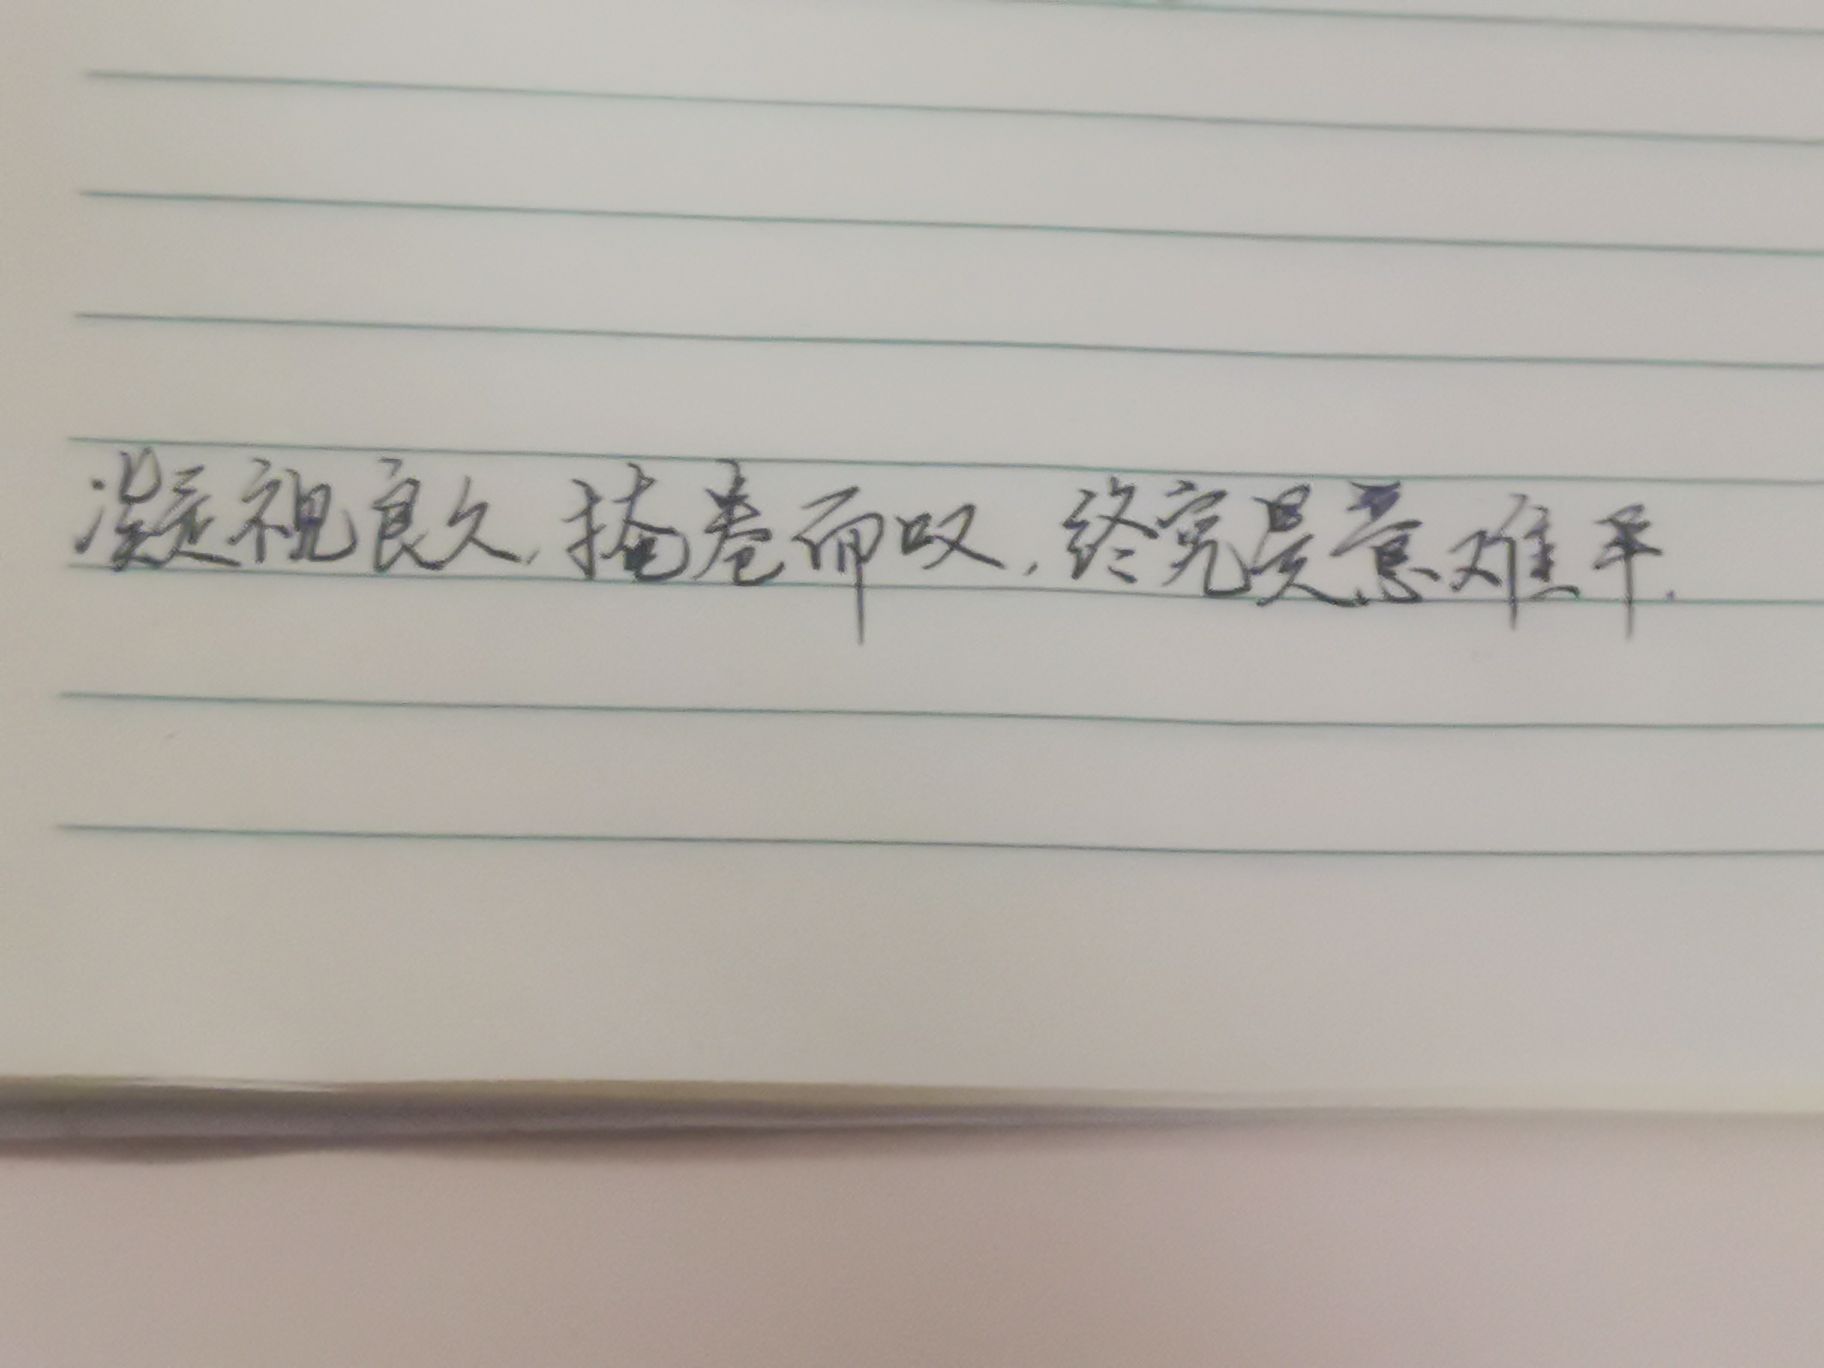 凝视良久,掩卷而叹,终究是意难平.